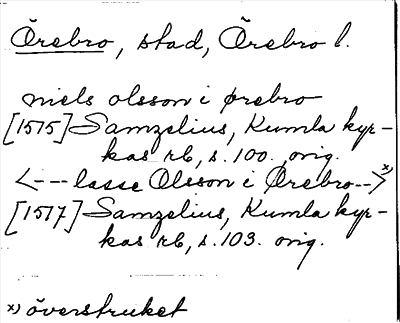 Örebro, stad, Örebro l.
niels olsson i ørebro
[1515] Samzelius, Kumla kyr-
kas rb, s. 100. orig.
<--- lasse Olsson i Ørebro--> x)
[1517] Samzelius, Kumla kyr-
kas rb, s. 103. orig.
x) överstruket